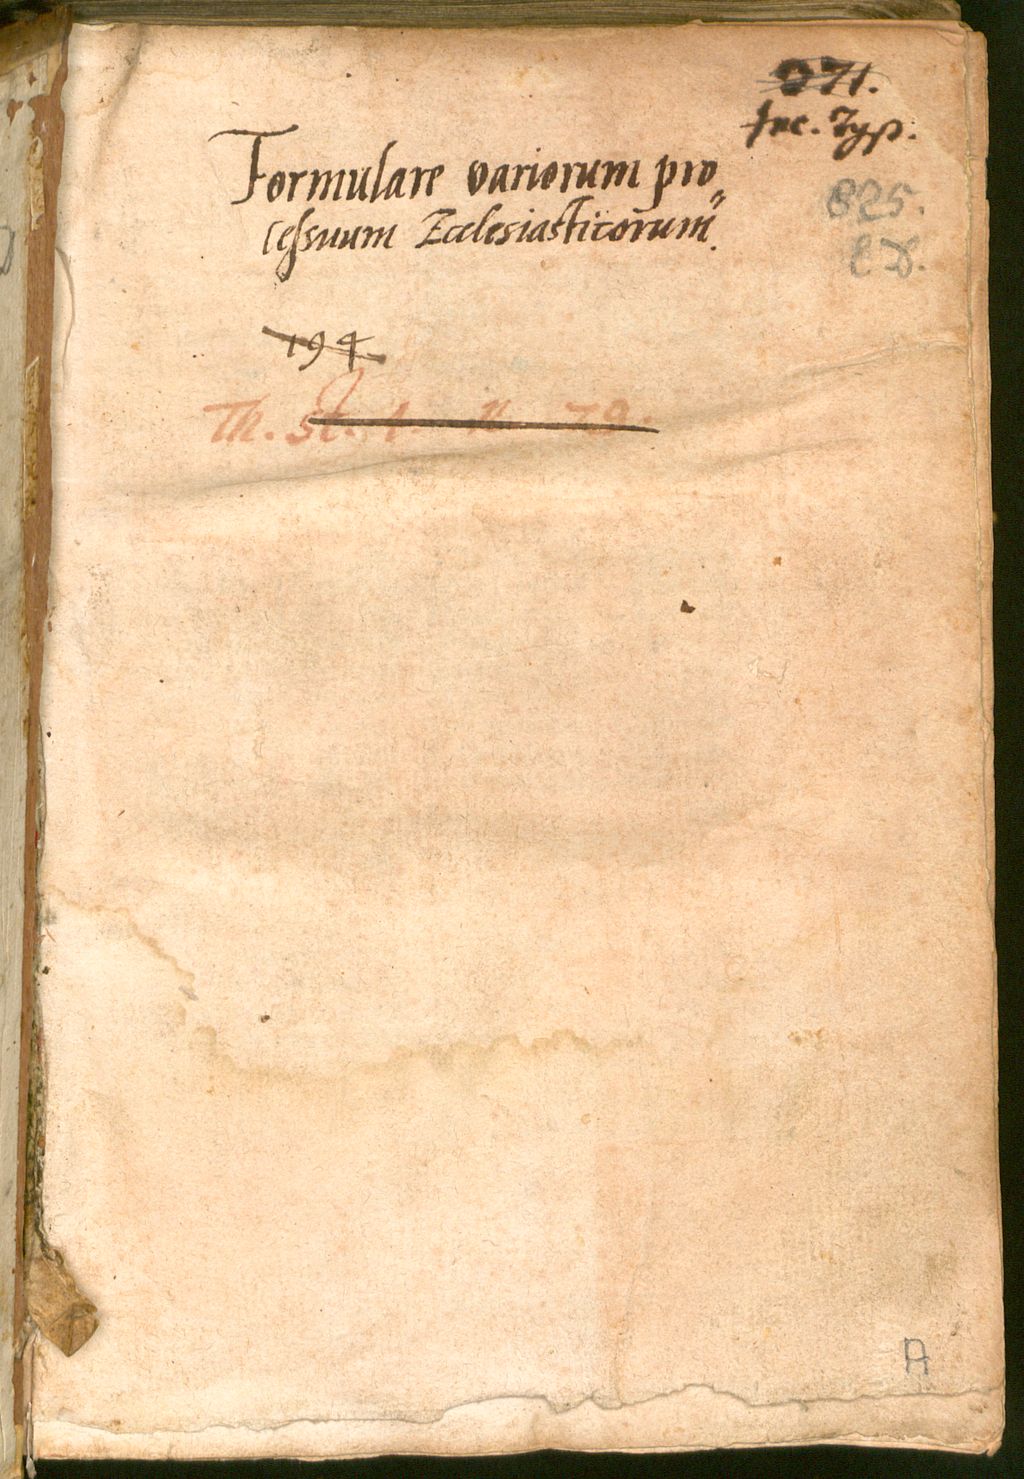 371.
Inc. Typ.
Formulare variorum pro„
cessuum Ecclesiasticorum.
825.
194
Th. st. 1. n. 79.
A